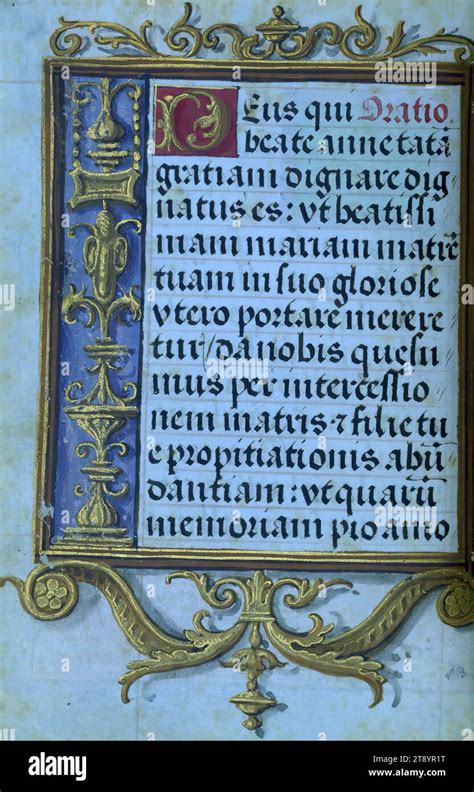 Deus qui Oratio.
beate anne tatā
gratiam dignare dig
natus es: vt beatissi
mam mariam matrē
tuam in suo gloriose
vtero portare merere
tur/da nobis quesu
mus per intercessio
nem matris ⁊ filie tu
e propitiationis abū
dantiam: vt quarū
memoriam pio amo
alamy
Image ID: 2T8YR1T
www.alamy.com